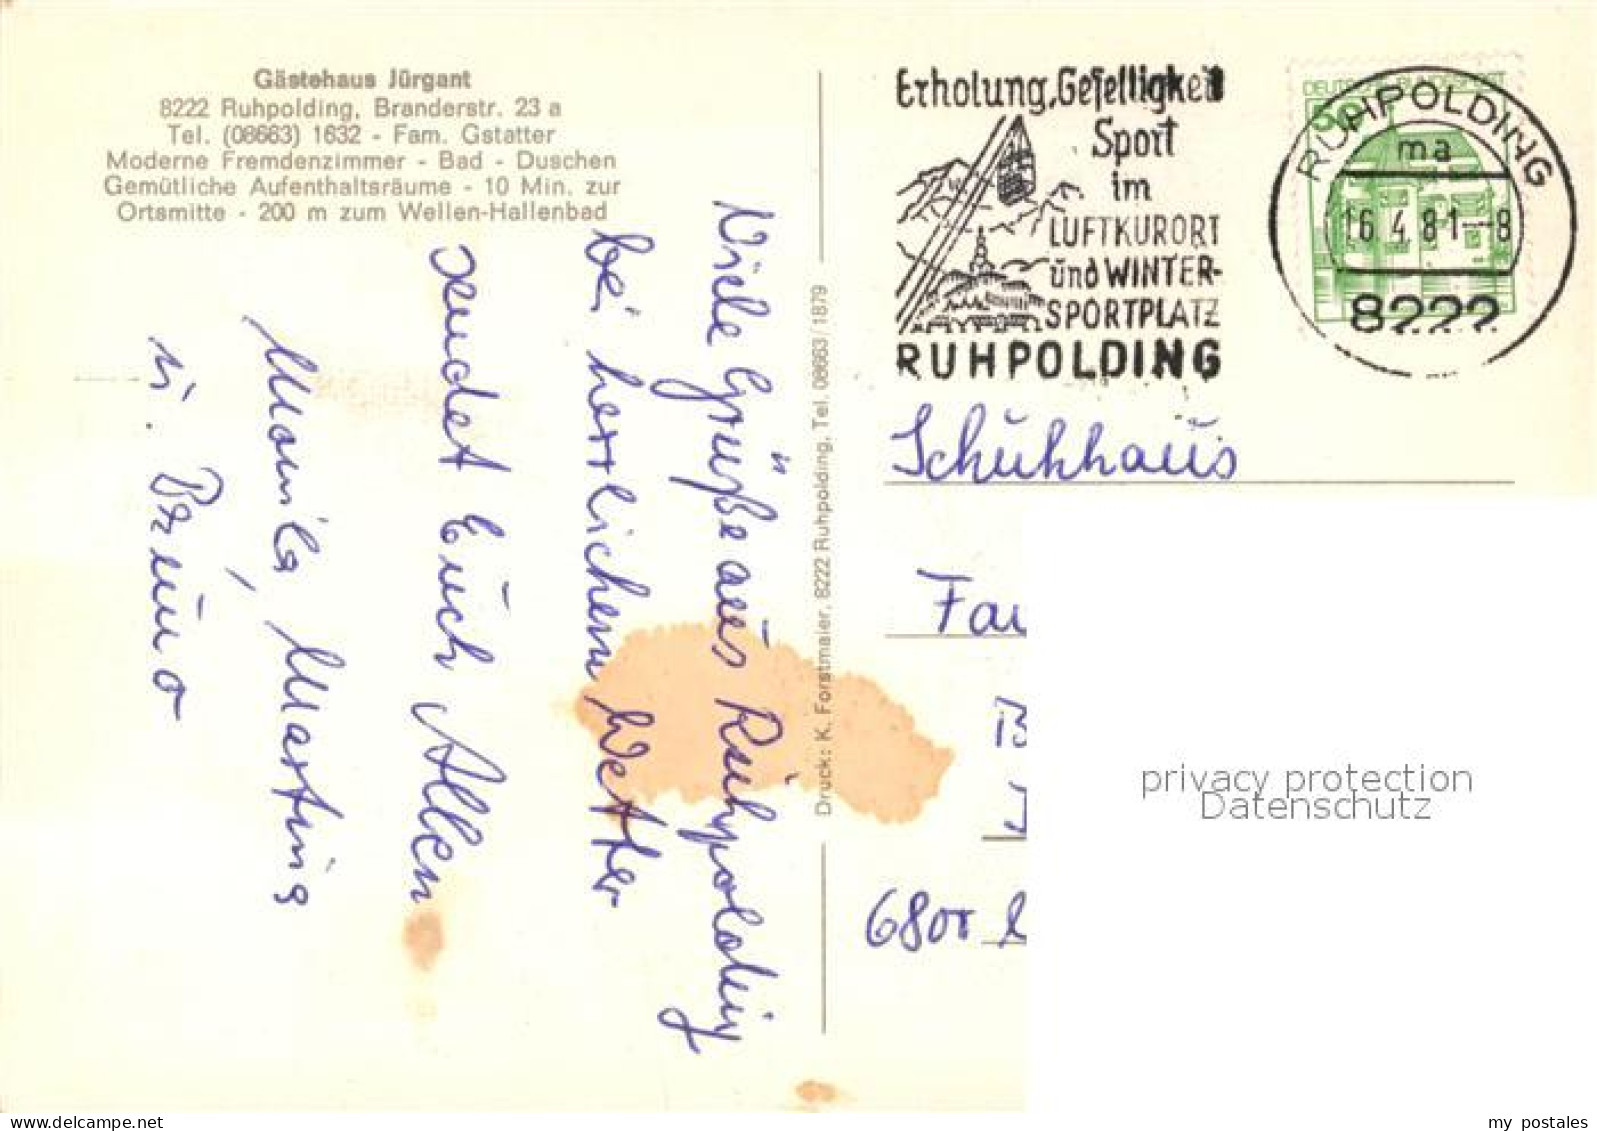 Gästehaus Jürgant
8222 Ruhpolding, Branderstr. 23 a
Tel. (08663) 1632 - Fam. Gstatter
Moderne Fremdenzimmer - Bad - Duschen
Gemütliche Aufenthaltsräume - 10 Min. zur
Ortsmitte - 200 m zum Wellen-Hallenbad
Viele Grüße aus Ruhpolding
bei herrlichem Wetter
sendet Euch Allen
Monika, Martina
u. Bruno
Druck: K. Forstmaier, 8222 Ruhpolding, Tel. 08663/1879
Erholung, Geselligkeit
Sport
im
LUFTKURORT
und WINTER-
SPORTPLATZ
RUHPOLDING
DEUTSCHE BUNDESPOST
50
RUHPOLDING
ma
16.4.81--8
8222
Schuhhaus
Fa
680
privacy protection
Datenschutz
delcampe.net
my postales